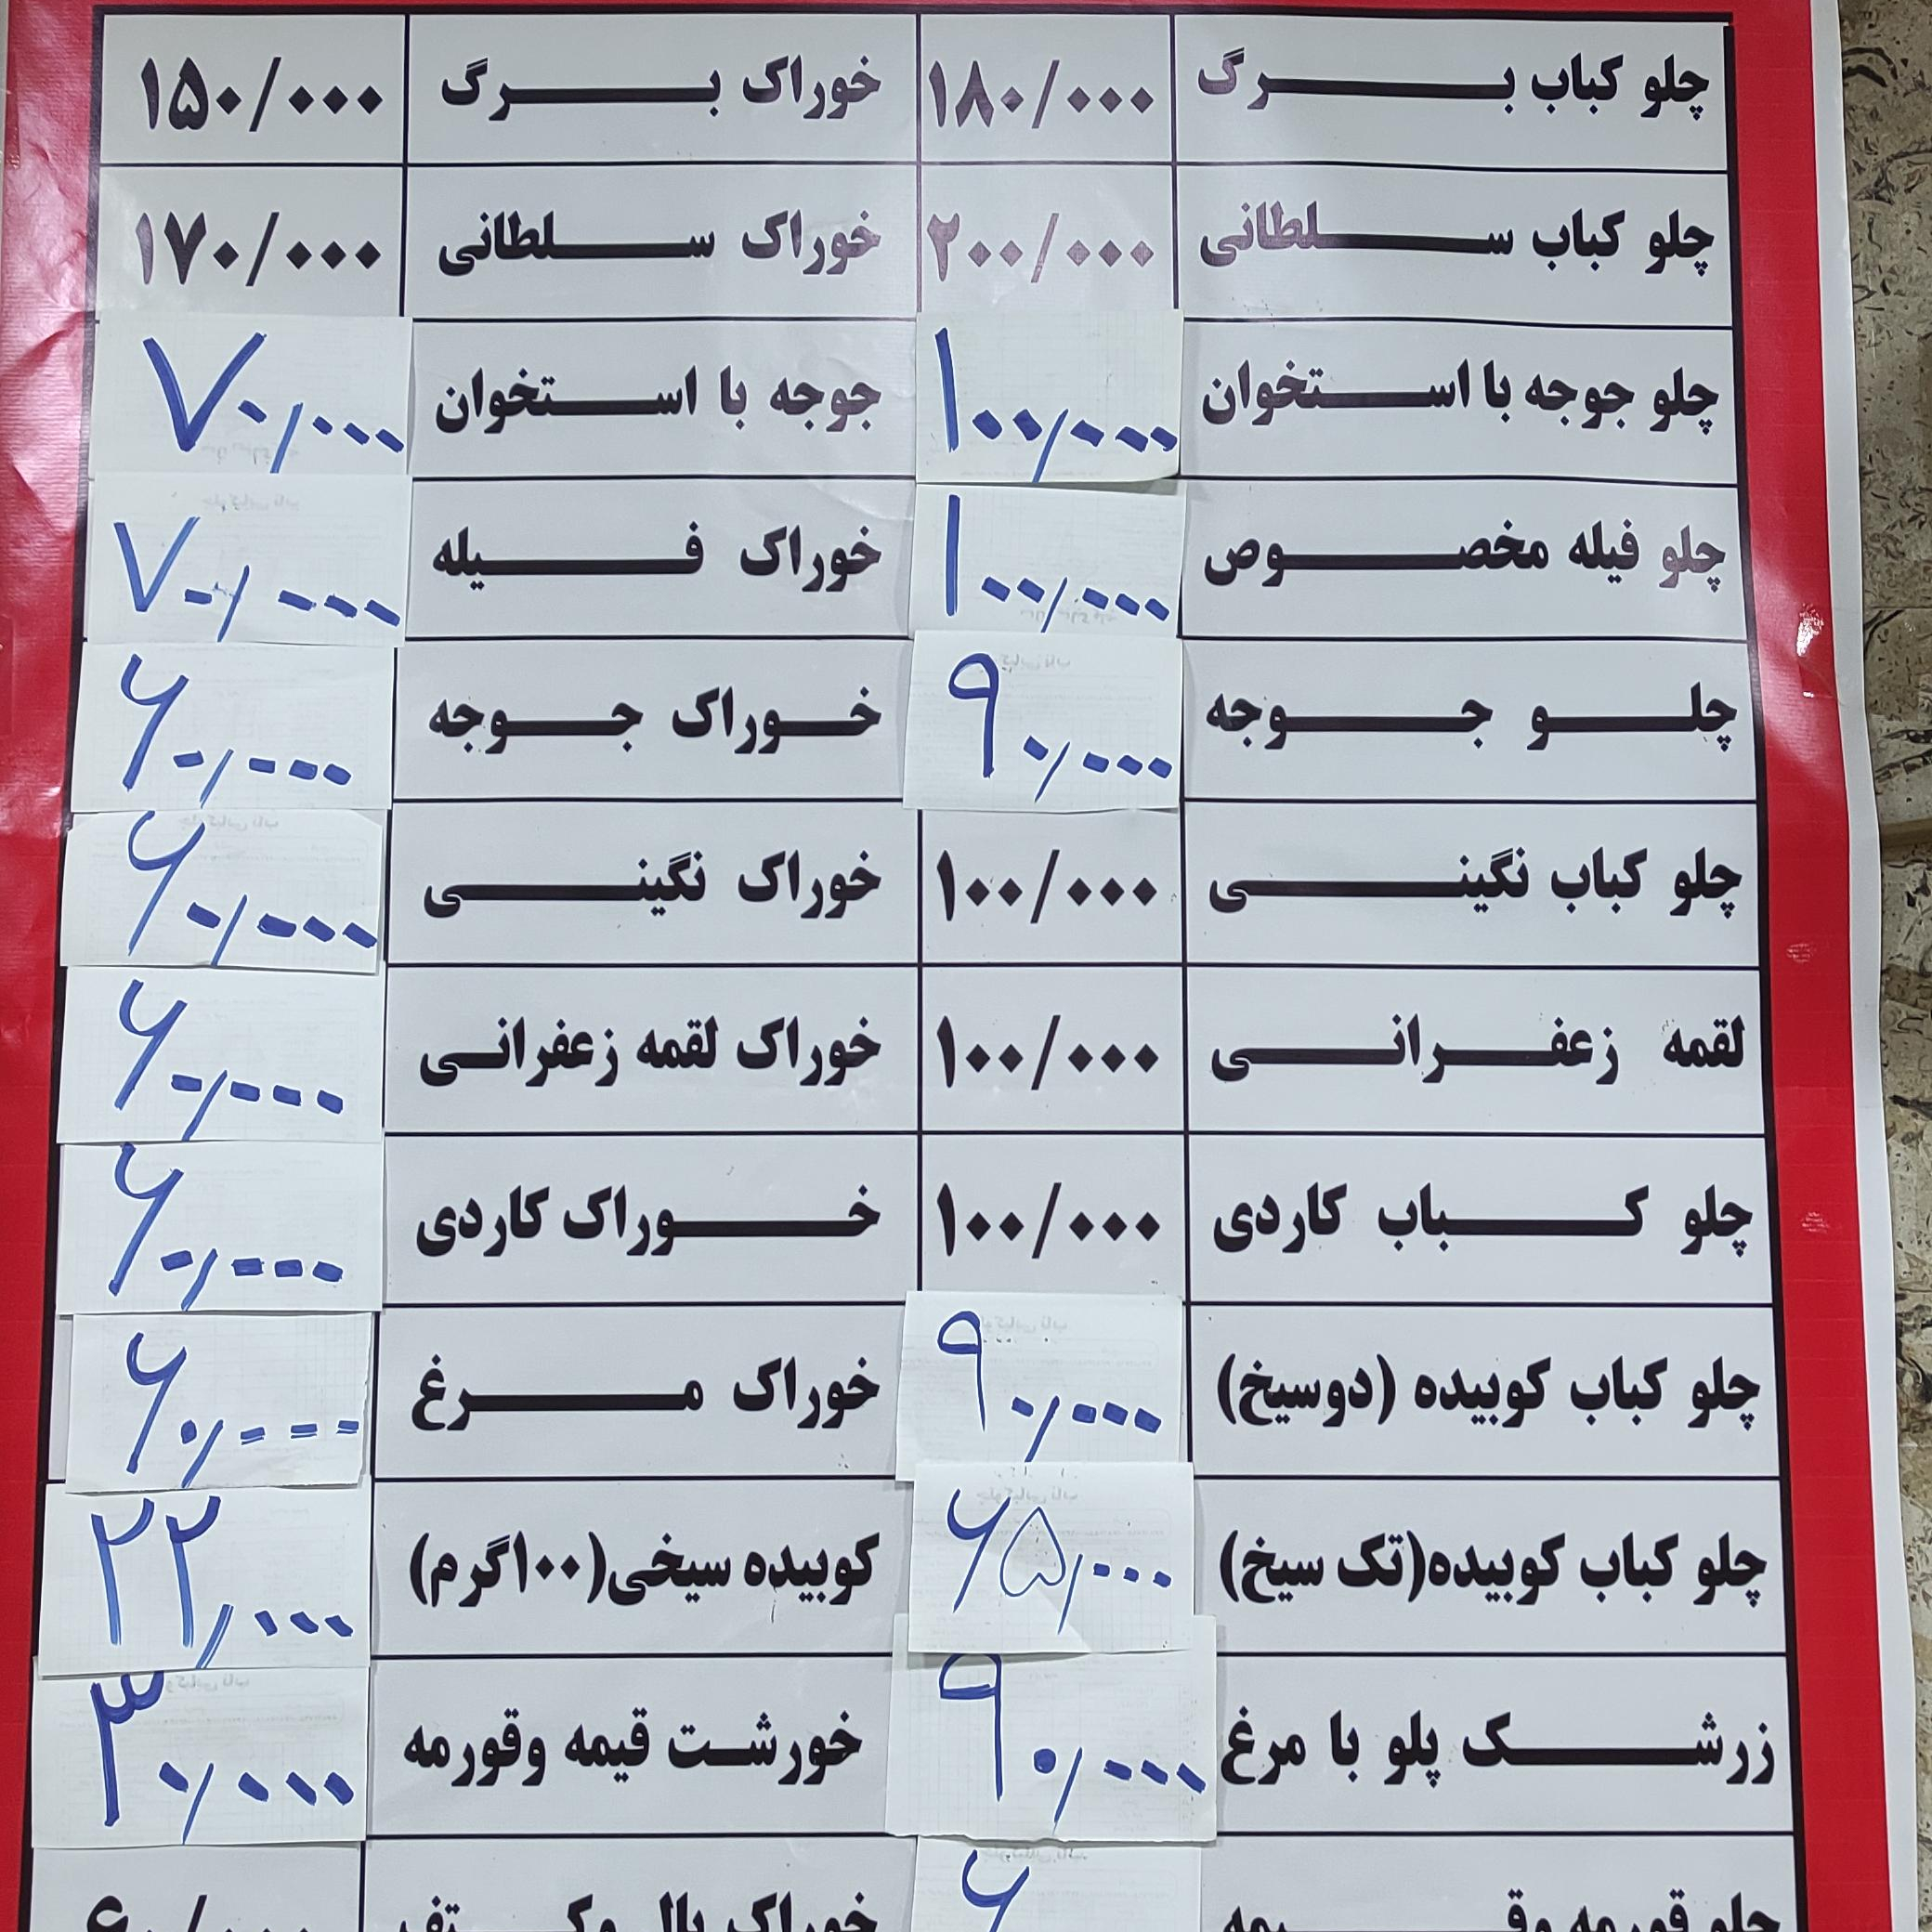 چلو کباب برگ ۱۸۰/۰۰۰ خوراک برگ ۱۵۰/۰۰۰
چلو کباب سلطانی ۲۰۰/۰۰۰ خوراک سلطانی ۱۷۰/۰۰۰
چلو جوجه با استخوان ۱۰۰/۰۰۰ جوجه با استخوان ۷۰/۰۰۰
چلو فیله مخصوص ۱۰۰/۰۰۰ خوراک فیله ۷۰/۰۰۰
چلو جوجه ۹۰/۰۰۰ خوراک جوجه ۶۰/۰۰۰
چلو کباب نگینی ۱۰۰/۰۰۰ خوراک نگینی ۶۰/۰۰۰
لقمه زعفرانی ۱۰۰/۰۰۰ خوراک لقمه زعفرانی ۶۰/۰۰۰
چلو کباب کاردی ۱۰۰/۰۰۰ خوراک کاردی ۶۰/۰۰۰
چلو کباب کوبیده (دوسیخ) ۹۰/۰۰۰ خوراک مرغ ۶۰/۰۰۰
چلو کباب کوبیده(تک سیخ) ۶۵/۰۰۰ کوبیده سیخی(۱۰۰گرم) ۲۲/۰۰۰
زرشک پلو با مرغ ۹۰/۰۰۰ خورشت قیمه وقورمه ۳۰/۰۰۰
چلو قورمه وقیمه ۶ خوراک بال وکتف ۶۰/۰۰۰